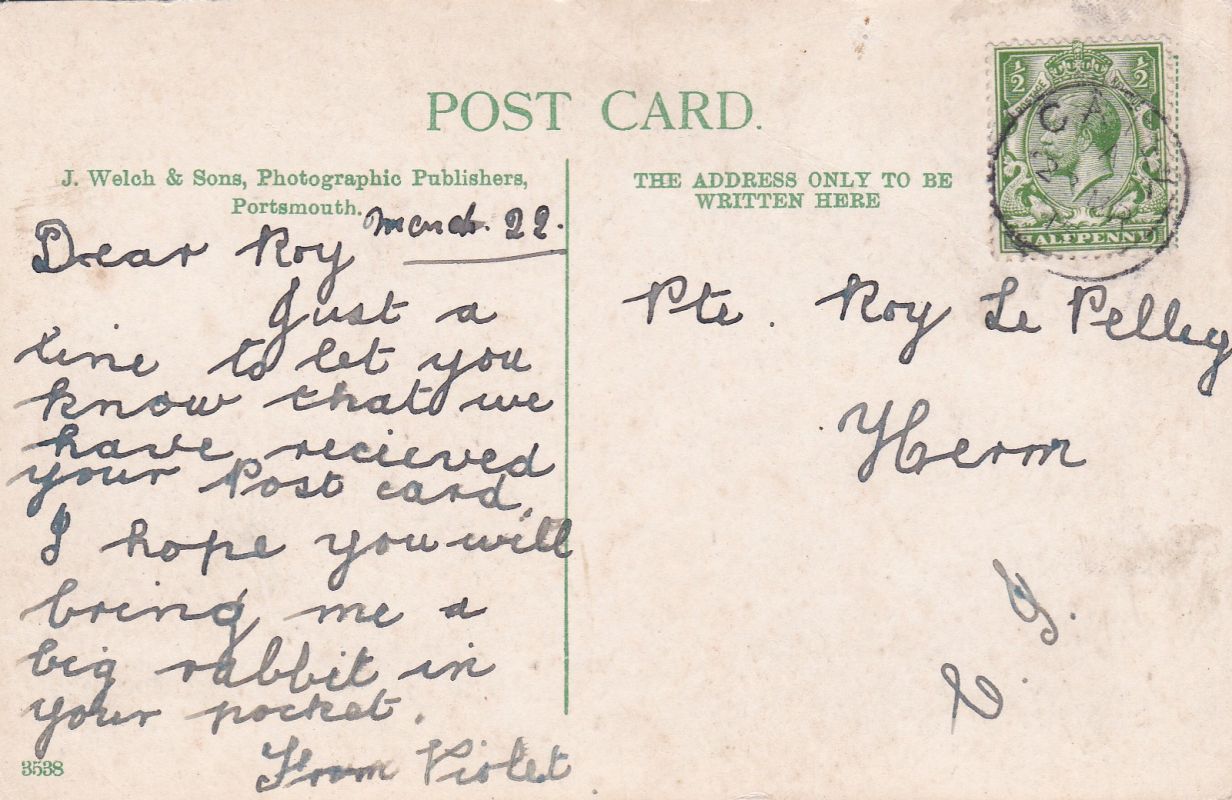 POST CARD.
J. Welch & Sons, Photographic Publishers,
Portsmouth.
THE ADDRESS ONLY TO BE
WRITTEN HERE
½ ½
HALFPENNY
March. 22.
Dear Roy
Just a
line to let you
know that we
have recieved
your Post card.
I hope you will
bring me a
big rabbit in
your pocket.
From Violet
3538
Pte. Roy Le Pelley
Herm